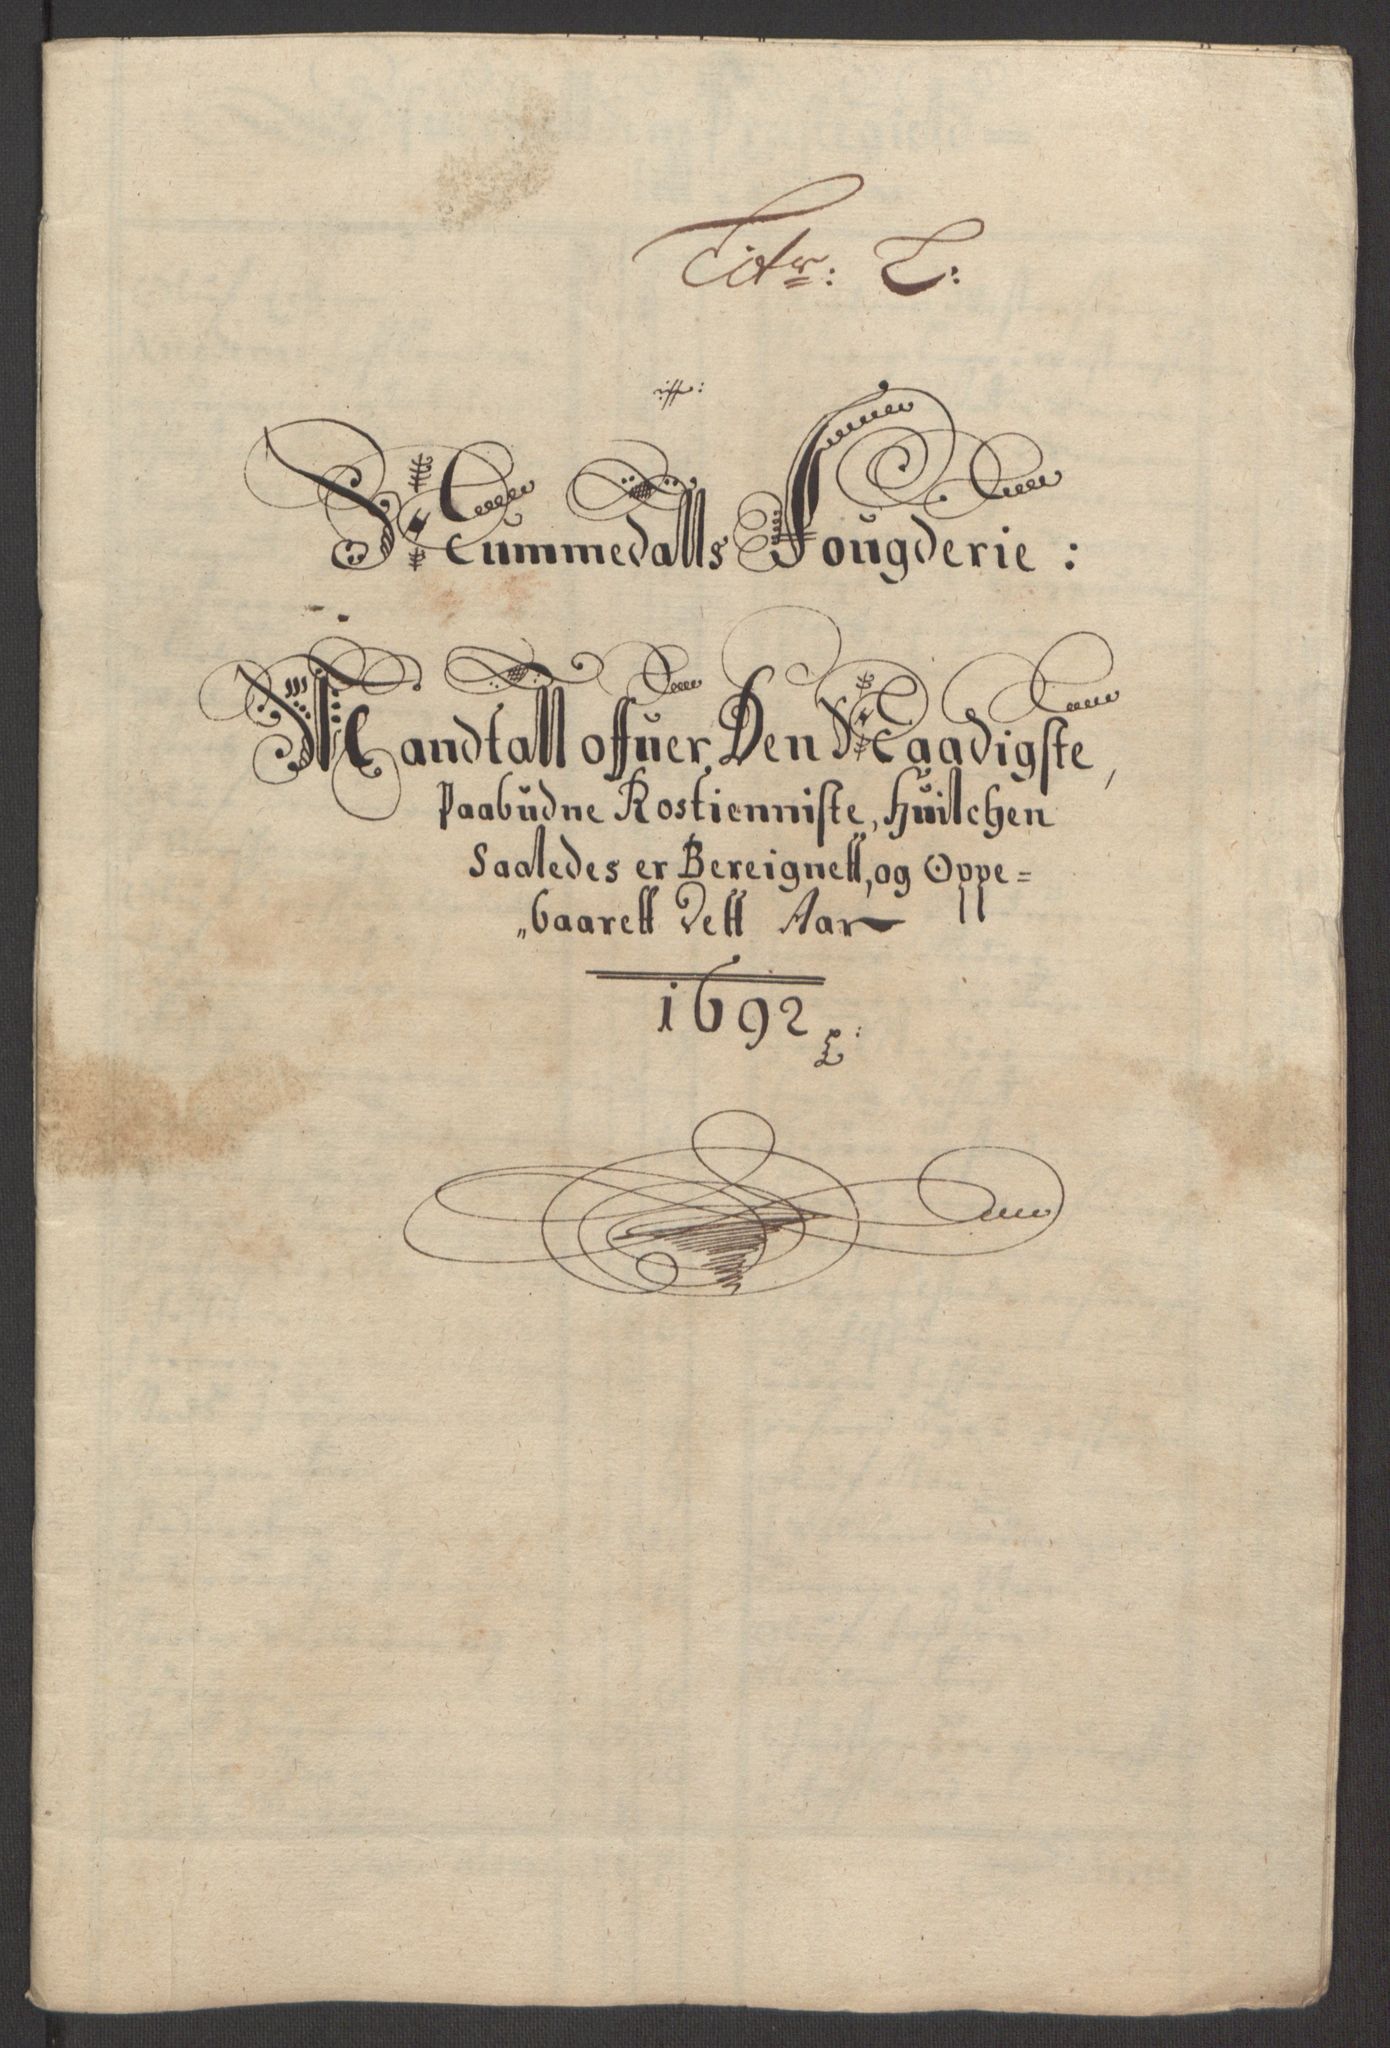 Litr: L:
Nummedalls Fougderie:
Mandtall offuer Den Naadigste,
Paabudne Rostienniste, Huilchen
Saaledes er Bereignett, og Oppe=
„baarett Dett Aar
1692